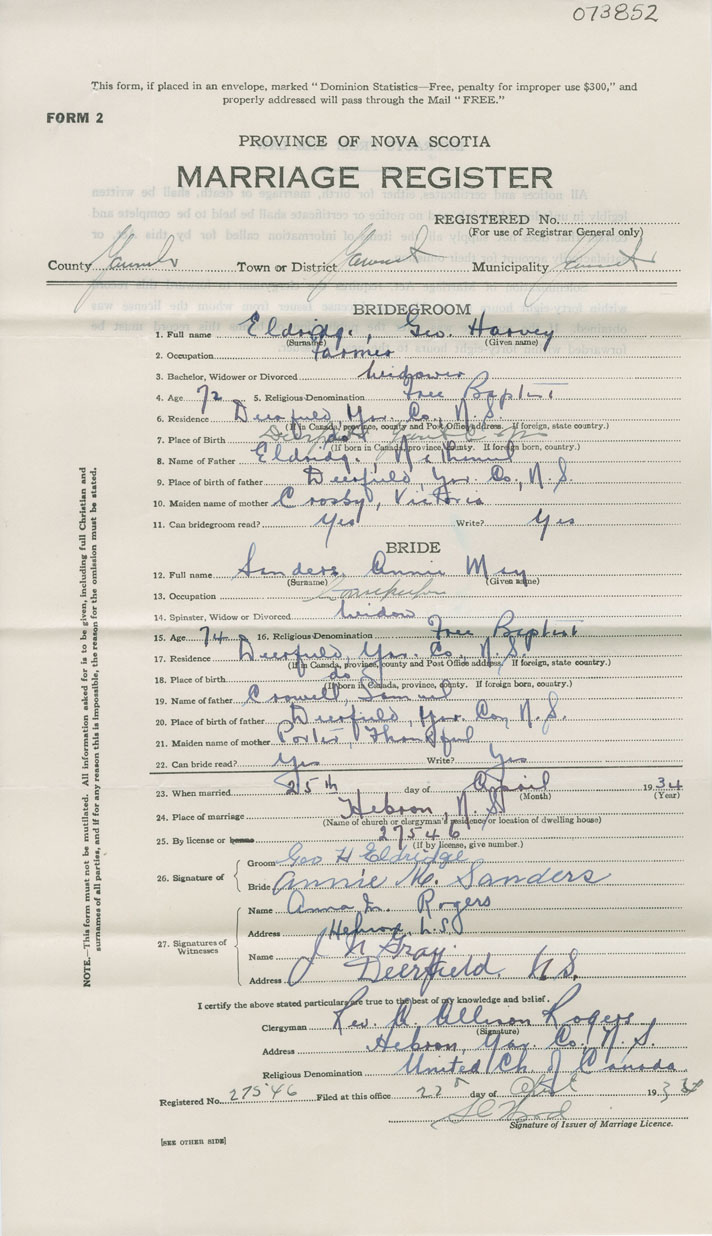 073852
This form, if placed in an envelope, marked "Dominion Statistics—Free, penalty for improper use $300," and
properly addressed will pass through the Mail "FREE."
FORM 2
PROVINCE OF NOVA SCOTIA
MARRIAGE REGISTER
REGISTERED No.
(For use of Registrar General only)
County Town or District Municipality
BRIDEGROOM
1. Full name Eldridge, Geo. Harvey
(Surname) (Given name)
2. Occupation Farmer
3. Bachelor, Widower or Divorced Widower
4. Age 72 5. Religious Denomination Free Baptist
6. Residence Deerfield, Yar. Co., N.S.
(If in Canada, province, county and Post Office address. If foreign, state country.)
7. Place of Birth do
(If born in Canada, province, county. If foreign born, country.)
8. Name of Father Eldridge,
9. Place of birth of father Deerfield, Yar. Co., N.S.
10. Maiden name of mother Crosby, Victoria
11. Can bridegroom read? Yes Write? Yes
BRIDE
12. Full name Sanders Annie May
(Surname) (Given name)
13. Occupation
14. Spinster, Widow or Divorced Widow
15. Age 74 16. Religious Denomination Free Baptist
17. Residence Deerfield, Yar. Co., N.S.
(If in Canada, province, county and Post Office address. If foreign, state country.)
18. Place of birth do
(If born in Canada, province, county. If foreign born, country.)
19. Name of father Crowell, Samuel
20. Place of birth of father Deerfield, Yar. Co., N.S.
21. Maiden name of mother Porter, Thankful
22. Can bride read? Yes Write? Yes
23. When married 25th day of April 1934
(Month) (Year)
24. Place of marriage Hebron, N.S.
(Name of church or clergyman's residence or location of dwelling house)
25. By license or banns 27546
(If by license, give number.)
26. Signature of
Groom Geo H Eldridge
Bride Annie M. Sanders
27. Signatures of Witnesses
Name Anna L. Rogers
Address Hebron, N.S.
Name J N Gray
Address Deerfield N.S.
I certify the above stated particulars are true to the best of my knowledge and belief.
Clergyman Rev. A. Allison Rogers
(Signature)
Address Hebron, Yar. Co. N.S.
Religious Denomination United Ch. of Canada
Registered No. 27546 Filed at this office day of 1934
Signature of Issuer of Marriage Licence.
[SEE OTHER SIDE]
NOTE.—This form must not be mutilated. All information asked for is to be given, including full Christian and
surnames of all parties, and if for any reason this is impossible, the reason for the omission must be stated.